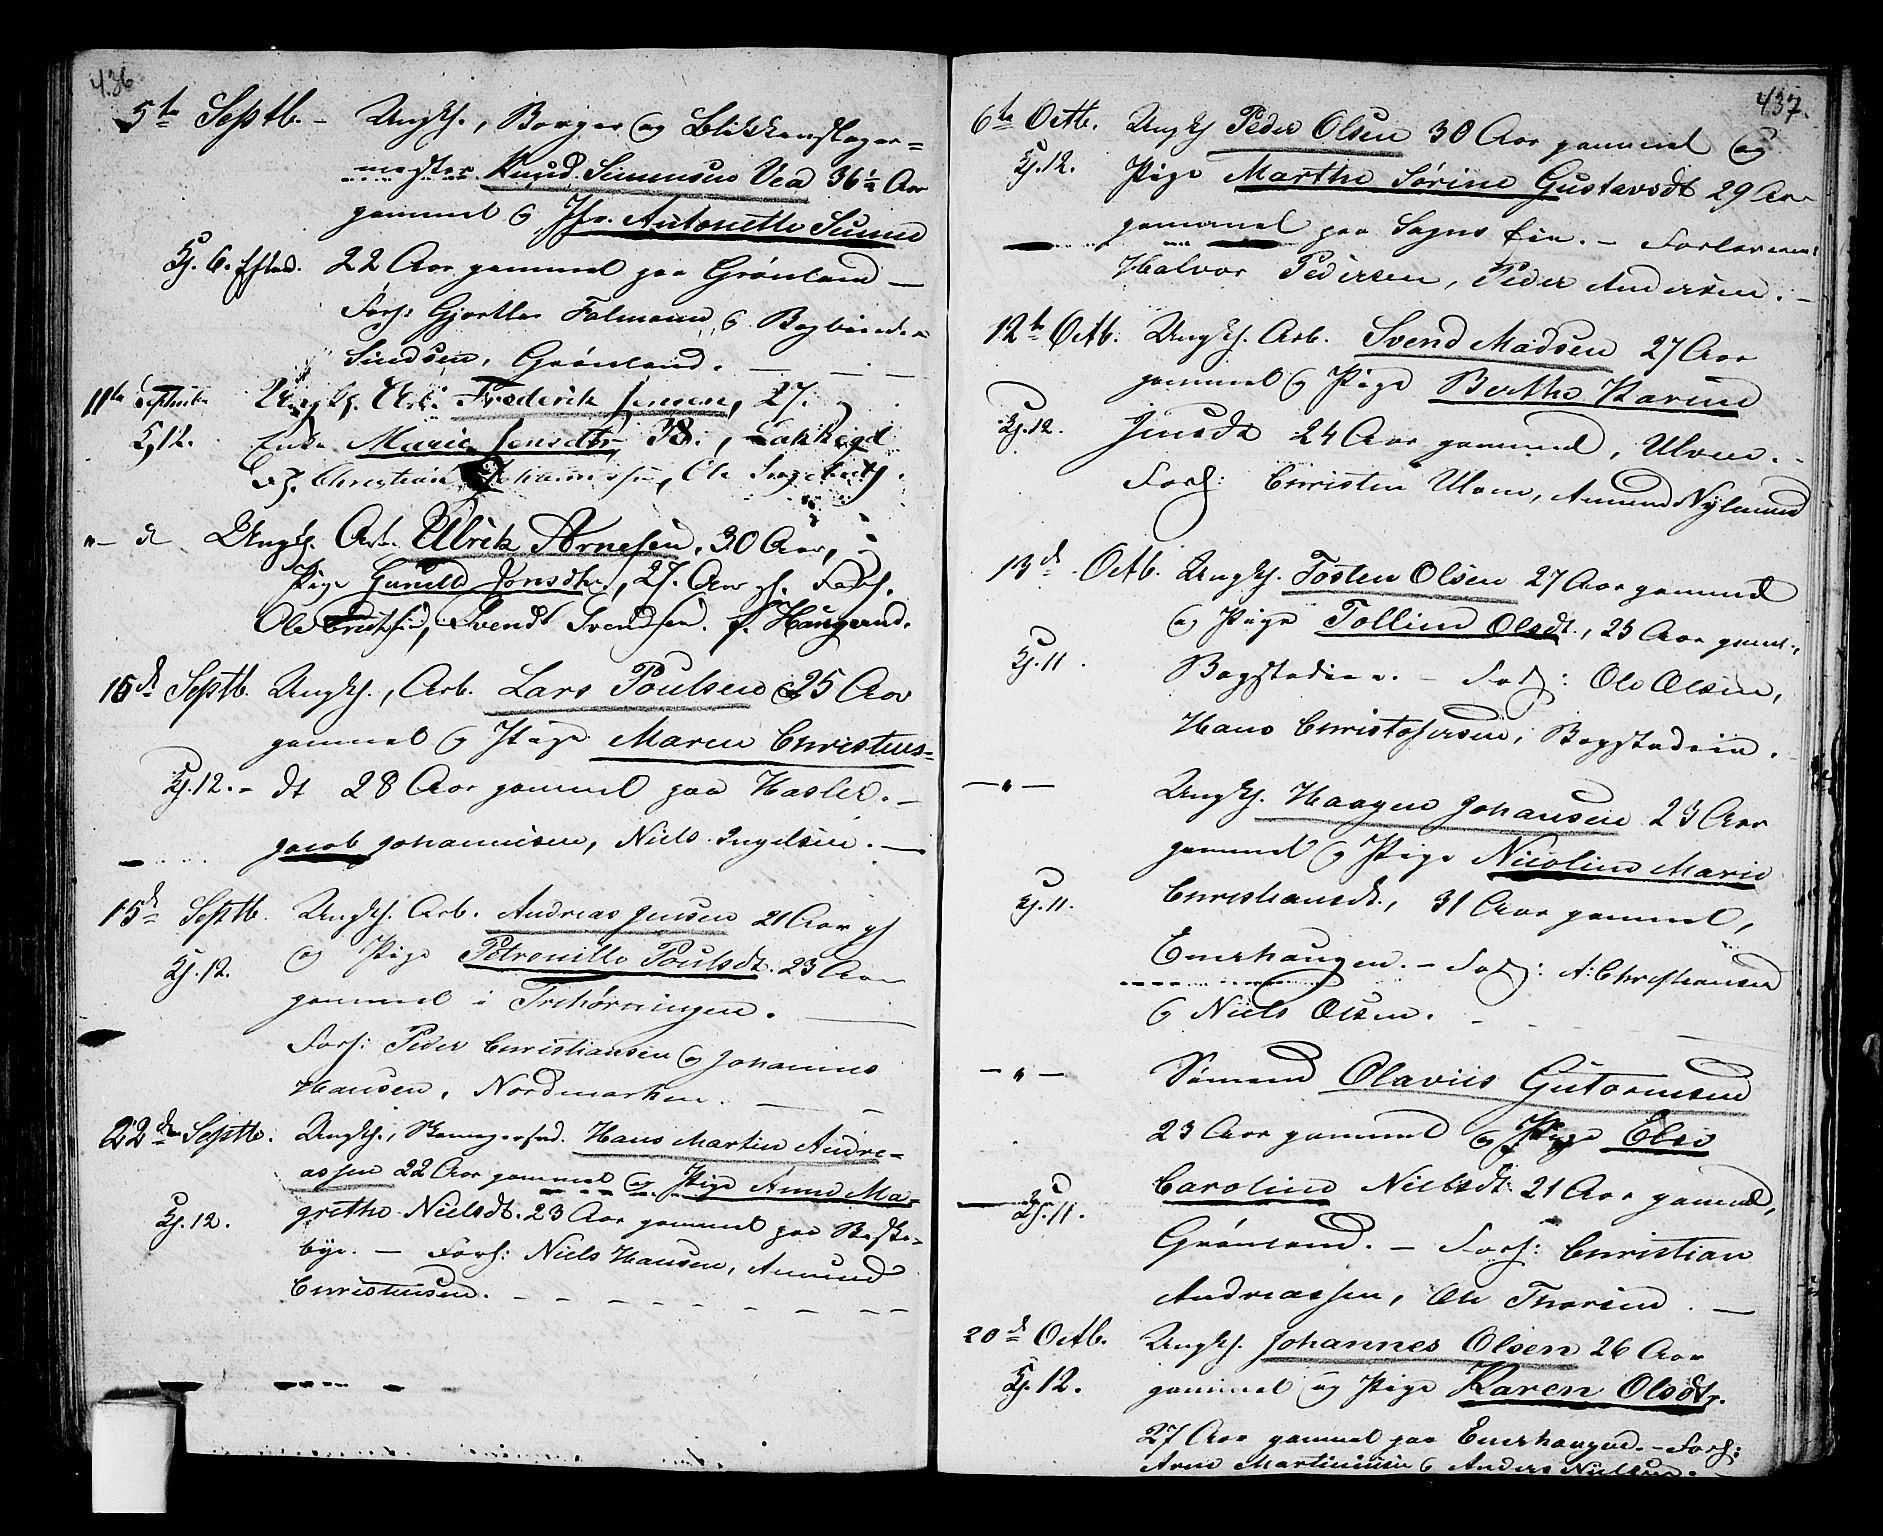 436
5te Septb. - Ungk., Borger og Blikkenslager=
mester Knud Simensen Vea 36 1/2 Aar
gammel og Jfr. Antonette
Kl. 6. Eftmd. 22 Aar gammel paa Grønland —
Forl: Gjørtler Falmann, og Bogbinder
Grønland. —
11te September Ungk. Arb. Frederik Jensen, 27. og
Kl 12. Enke Marie Jensdtr, 38.,
Christian Johannessen, Ole
" — d Ungk. Arb. Ulrik Arnesen, 30 Aar,
Pige Gunild Jonsdtr, 27. Aar gl. Forl.
Ole Erichsen, Svendt Svendsen.
15d Septb. Ungk., Arb. Lars Poulsen 25 Aar
gammel og Pige Maren Christens-
Kl. 12. - dt 28 Aar gammel paa Hasler. —
Jacob Johannesen, Niels Ingelsen. —
15d Septb. Ungk. Arb. Andreas Jensen 21 Aar gl
og Pige Petronille Poulsdt. 23 Aar
Kl. 12.
gammel i Trehørningen. —
Forl: Peder Christiansen og Johannes
Hansen, Nordmarken. —
22d Septb. Ungk., Hans Martin Andre-
assen 22 Aar gammel og Pige Anne Ma-
Kl. 12. grethe Nielsdt. 23 Aar gammel paa Bakke-
bye. — Forl: Niels Hansen, Amund
Christensen.
437.
6te Octb. Ungk Peder Olsen 30 Aar gammel og
Kl. 12. Pige Marthe Sørine Gustavsdt 29 Aar
gammel paa Sogns Eie. — Forloverne:
Halvor Pedersen, Peder Andersen. -
12te Octb. Ungk. Arb. Svend Madsen 27 Aar
gammel og Pige Berthe Karine
Kl. 12. Jensdt 24 Aar gammel, Ulven. -
Forl: Christen Ulven, Amund Nylænd
13d Octb. Ungk. Tosten Olsen 27 Aar gammel
og Pige Telline Olsdt., 25 Aar gaml.,
Kl. 11. Bogstadeie. — Forl: Ole Olsen,
Hans Christophersen, Bogstadeie.
— " — Ungk. Haagen Johansen 23 Aar
gammel og Pige Nicoline Marie
Kl. 11. Christiansdt., 31 Aar gammel,
Enerhaugen. — Forl: A: Christiansen
og Niels Olsen.
— " — Sømand Olavus Gutormsen
23 Aar gammel og Pige Else
Caroline Nielsdt. 21 Aar gammel,
Kl. 11.
Grønland. — Forl: Christian
Andreassen, Ole Thoresen. —
20d Octb. Ungk. Johannes Olsen 26 Aar
Kl. 12. gammel og Pige Karen Olsdtr.
27 Aar gammel paa Enerhaugen. — Forl:
Arne Martinusen og Anders Nielsen.